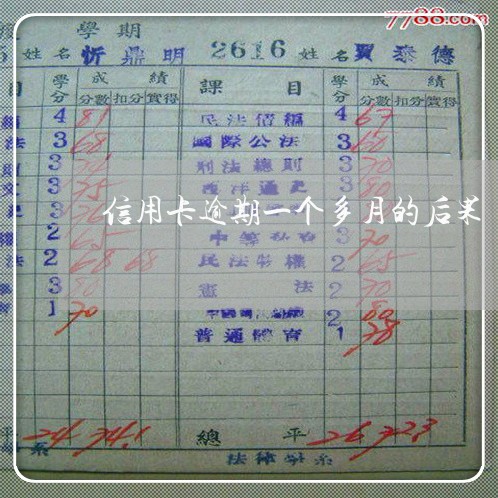 7788.com
學期
5 姓名 忻鼎明 2616 姓名 賈泰德
目 學分 成績 課目 學分 成績
分數 扣分 實得 分數 扣分 實得
4 81 民法債編 4 67
法 3 68 國際公法 3 60
3 刑法總則 3 70
3 75 西洋通史 3 80
信用卡逾期一个多月的后果
2 65 3 70
法 2 68 68 民法物權 2 65
3 80 憲法 2 70
1 70 2 80
普通體育 1 78
平 24 74.1 總平 26 72.3
系 法律學系